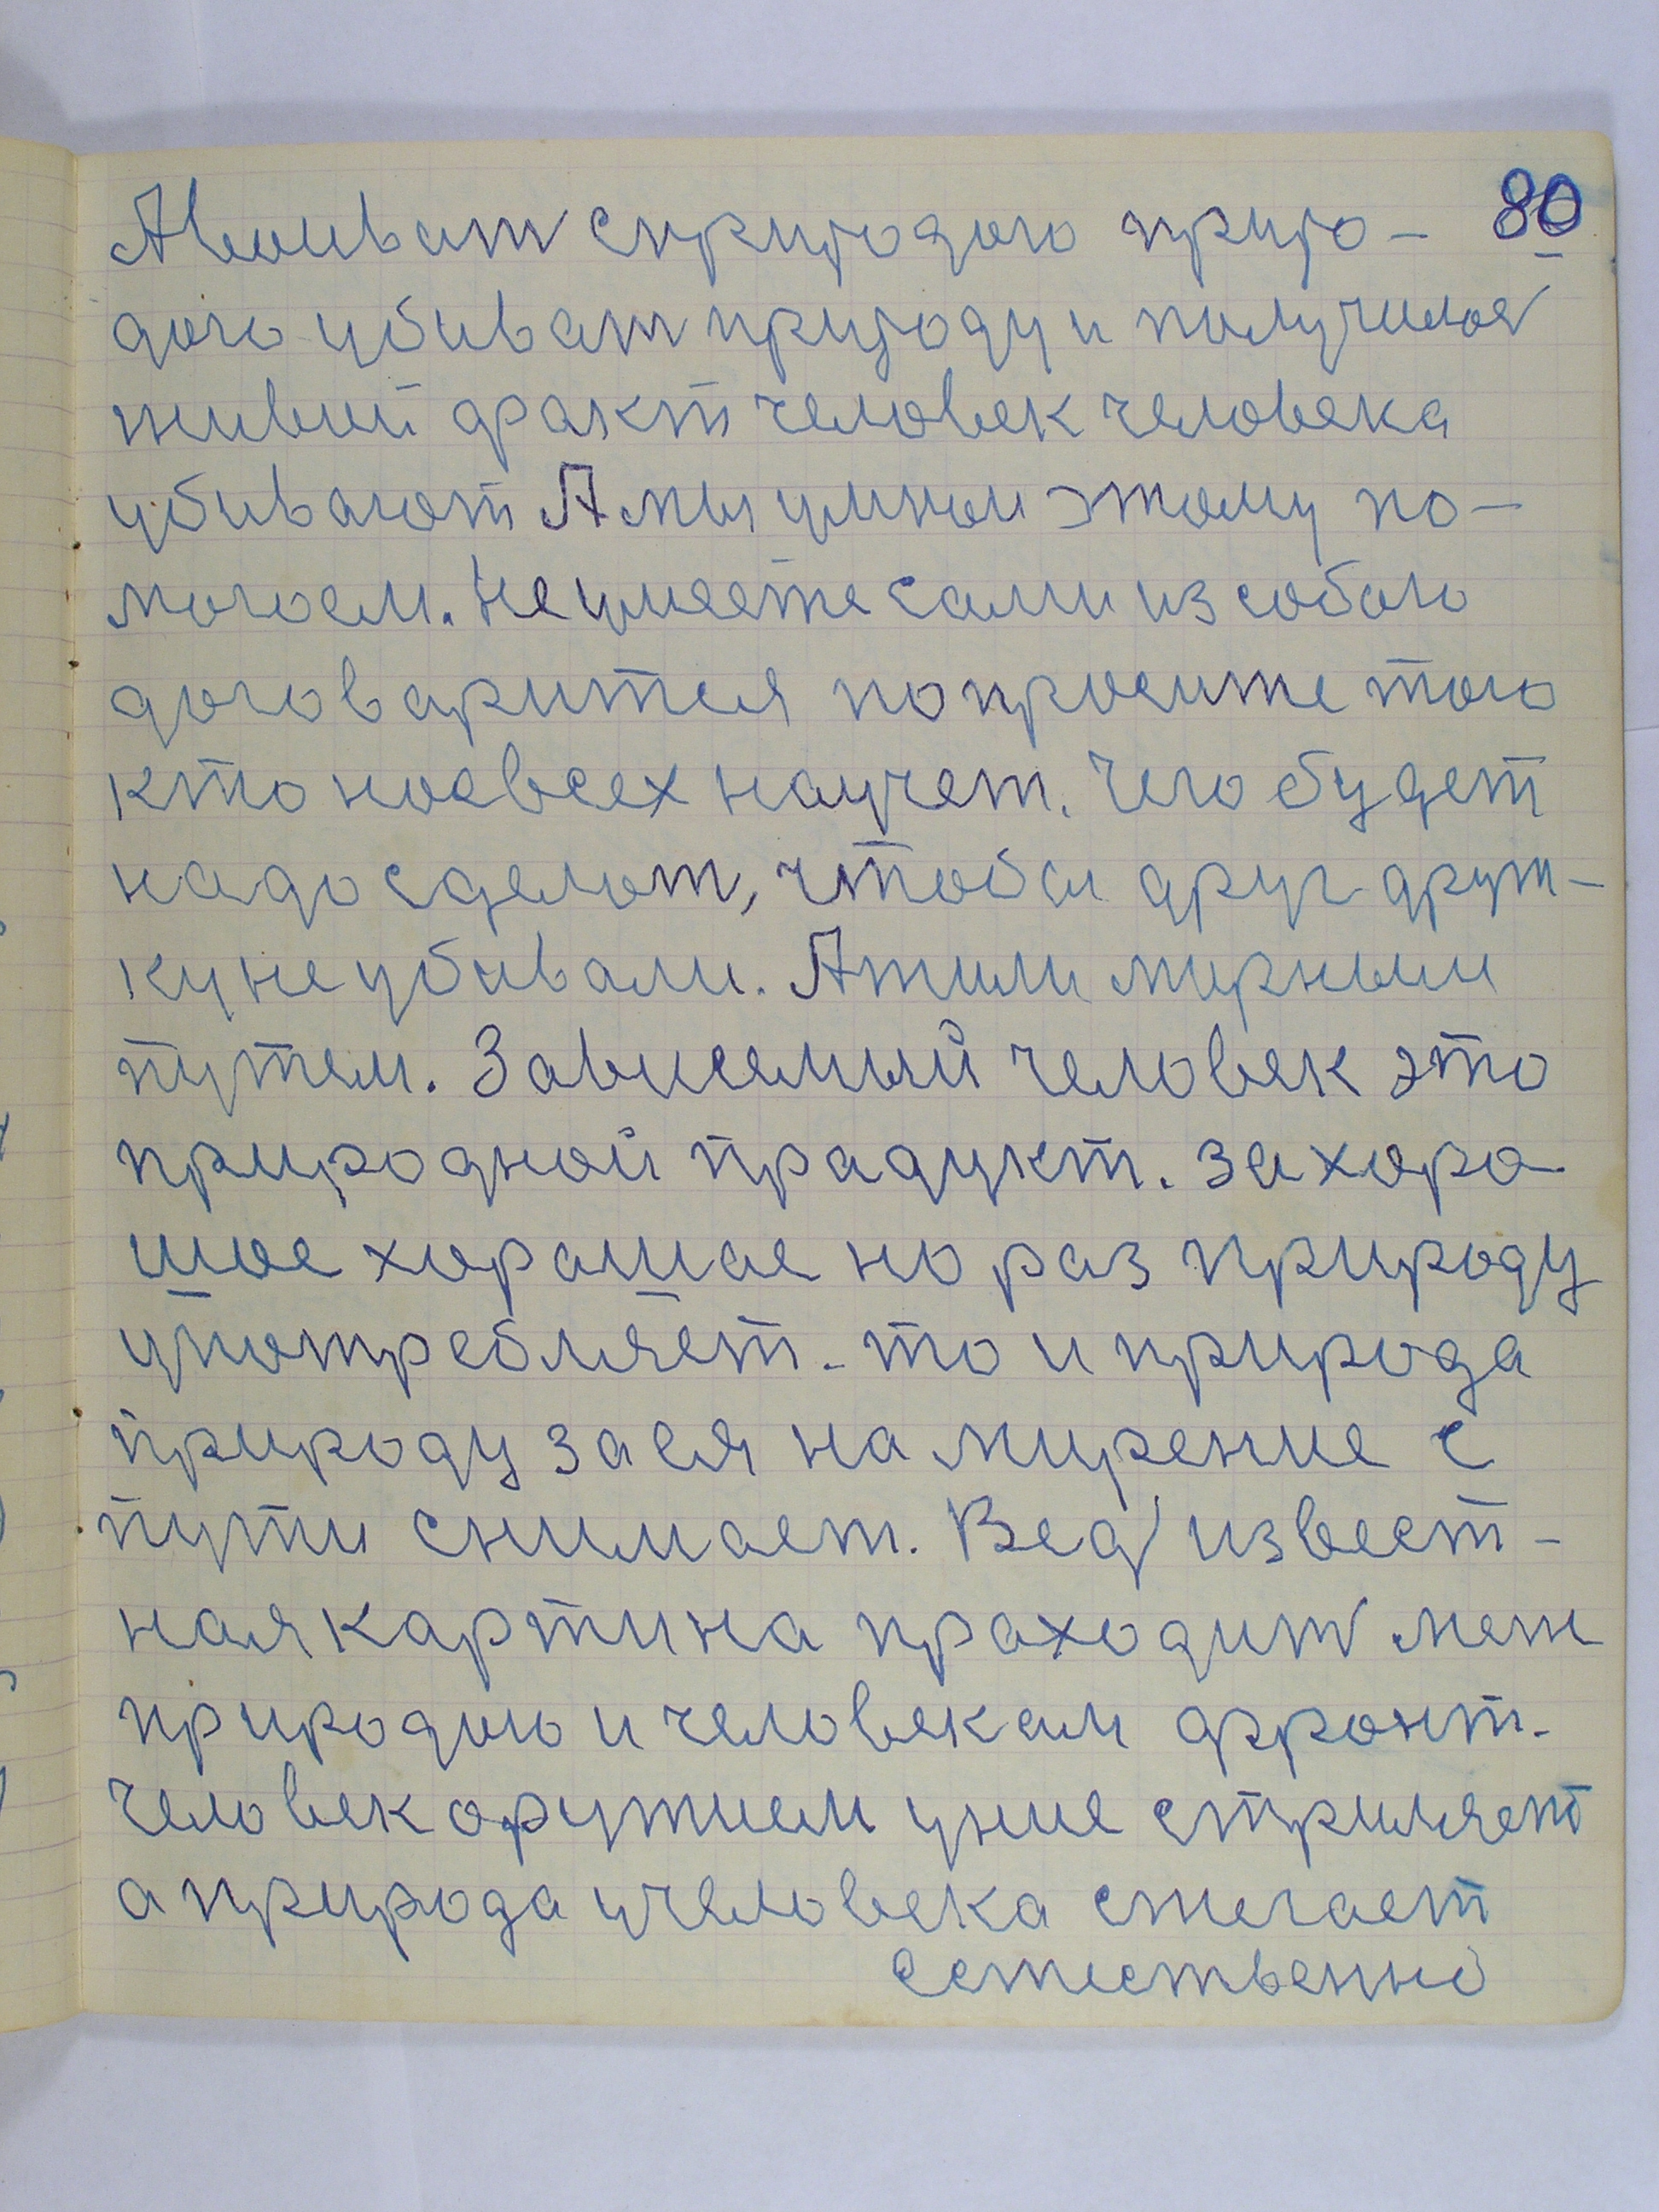 80
А воивать с природою приро-
дою убивать природу и получился
живый факт человек человека
убивают А мы умнои этому по-
могоем. Не умеете сами из собою
договарится попросите того
кто нос всех научет. Чего будет
надо сделот, чтобы друг друж-
ку не убивали. А жили мирным
путем. Зависемый человек это
природной прадукт. за хоро
шое хорашае но раз природу
употребляет. то и природа
природу за ея намирение с
пути снимает. Ведь извест-
ная картина праходить меж
природою и человекам фронт.
Человек оружием у ние стриляет
а природа у человека стегает
естественно